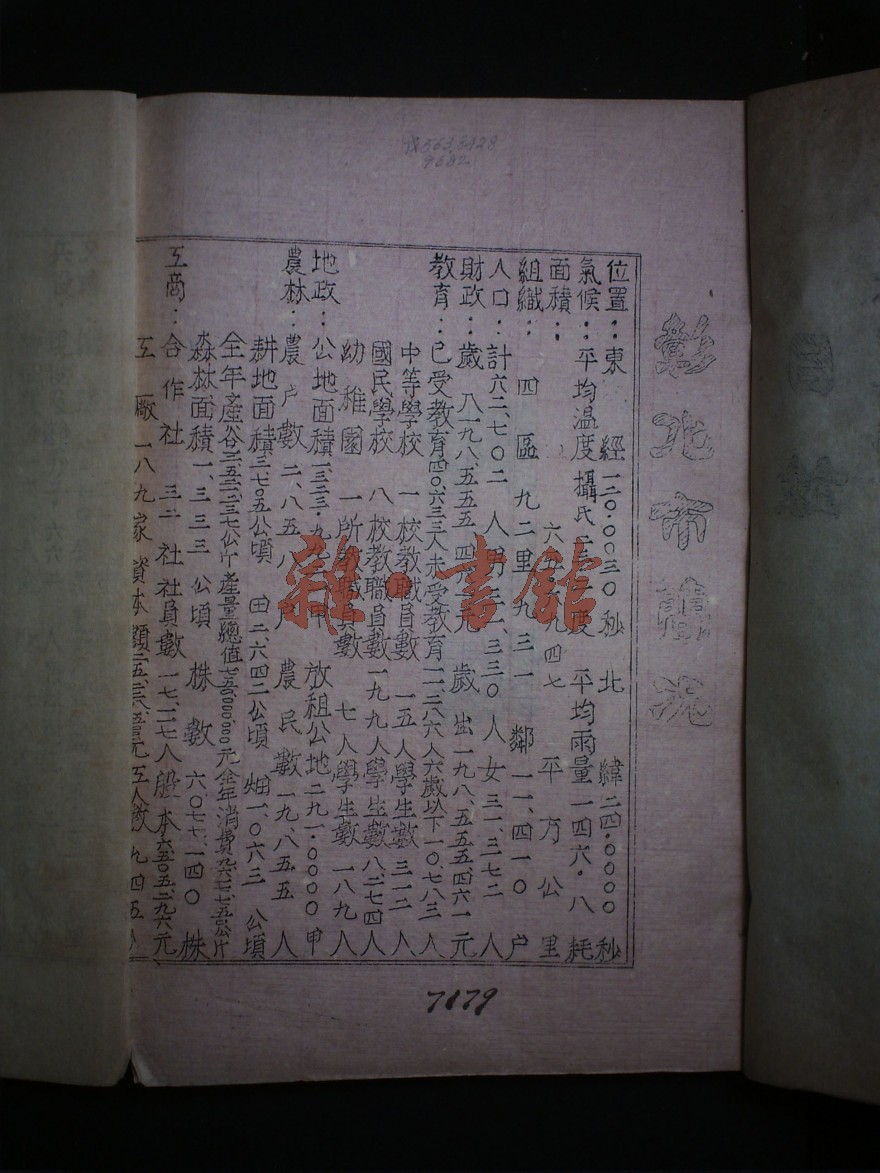 彰化市概況
位置：東經一二〇·〇〇三〇秒 北緯二四·〇〇〇〇秒
氣候：平均溫度攝氏二 度 平均雨量一四六·八耗
面積： 六五 九四七 平方公里
組織： 四區九二里九三一鄰一一、四一〇户
人口：計六二、七〇二人男三一、三三〇人女三一、三七二人
財政：歲 八一九八、五五五、四六一元 歲出一九八、五五五、四六一元
教育：已受教育四〇、六三三人未受教育一一、二八六人六歲以下一〇、七八三人
中等學校 一校教職員數 一五人學生數 三一二人
國民學校 八校教職員數一九九人學生數八、二七四人
幼稚園 一所教職員數 七人學生數 一八九人
地政：公地面積一、三二三·九九 甲 放租公地二九一·〇〇〇〇甲
農林：農户數二、八五八户 農民數一九、八五五人
耕地面積三、七〇五公頃 田二、六四二公頃 畑一、〇六三公頃
全年產谷 公斤產量總值 元全年消費 公斤
森林面積一、三三三公頃 株數 六、〇七七、一四〇株
工商：合作社 三二社社員數一七、一二七人股本六、五〇五、二九六元
工廠一八九家資本額 元工人數九四五
7179
雜·書館